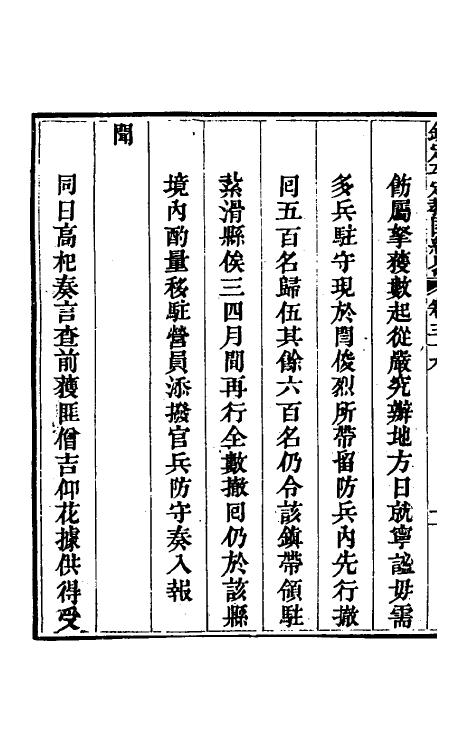 飭屬拏獲數起從嚴究辦地方日就寧謐毋需
多兵駐守現於閆俊烈所帶留防兵內先行撤
囘五百名歸伍其餘六百名仍令該鎭帶領駐
紮滑縣俟三四月間再行全數撤囘仍於該縣
境內酌量移駐營員添撥官兵防守奏入報
聞
同日高杞奏言查前獲匪僧吉仰花據供得受